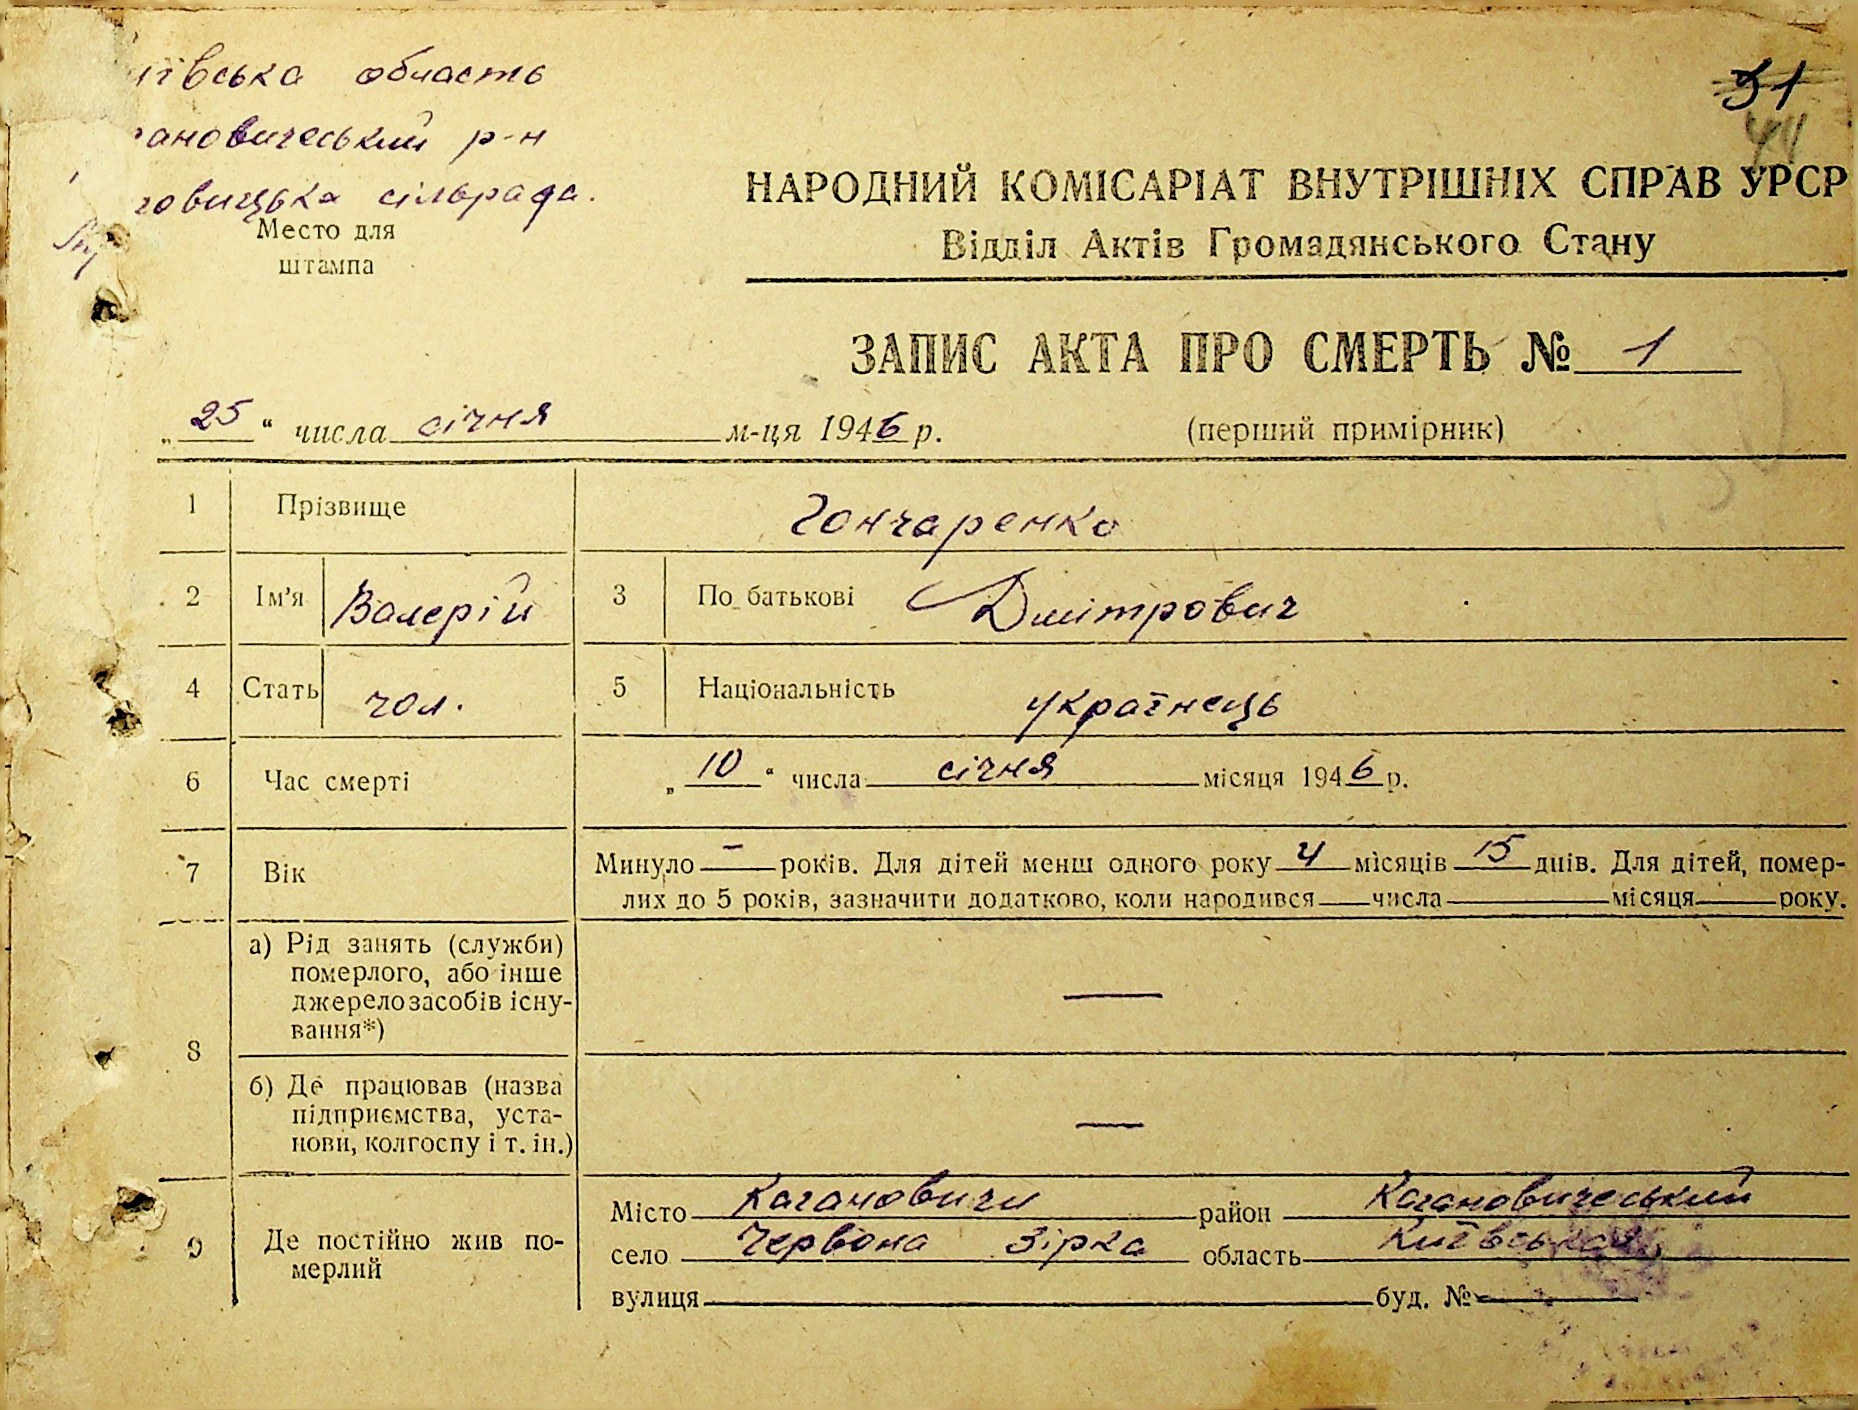 ївська область
ановичеський р-н
новицька сільрада.
Место для
штампа
51
44
НАРОДНИЙ КОМІСАРІАТ ВНУТРІШНІХ СПРАВ УРСР
Відділ Актів Громадянського Стану
ЗАПИС АКТА ПРО СМЕРТЬ № 1
„25“ числа січня м-ця 1946 р.
(перший примірник)
1 Прізвище Гончаренко
2 Ім'я Валерій 3 По батькові Дмітрович
4 Стать чол. 5 Національність українець
6 Час смерті „10“ числа січня місяця 1946 р.
7 Вік Минуло - років. Для дітей менш одного року 4 місяців 15 днів. Для дітей, помер-
лих до 5 років, зазначити додатково, коли народився числа місяця року.
8 а) Рід занять (служби)
померлого, або інше
джерело засобів існу-
вання*) —
б) Де працював (назва
підприємства, уста-
нови, колгоспу і т. ін.) —
9 Де постійно жив по-
мерлий
Місто Кагановичи район Кагановичеський
село Червона Зірка область Київська
вулиця буд. №